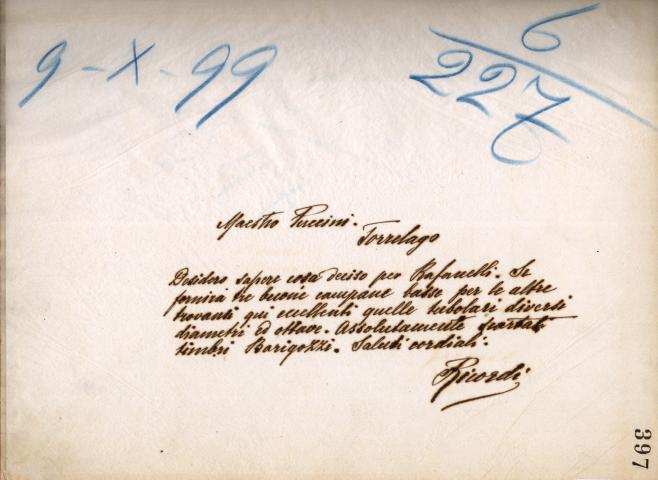 9-X-99
6
227
Maestro Puccini.
Torrelago
Desidero sapere cosa deciso per Rafanelli. Se
fornirà tre buone campane basse per le altre
trovanti qui eccellenti quelle tubolari diversi
diametri ed ottave. Assolutamente scartati
timbri Barigozzi. Saluti cordiali.
Ricordi
397